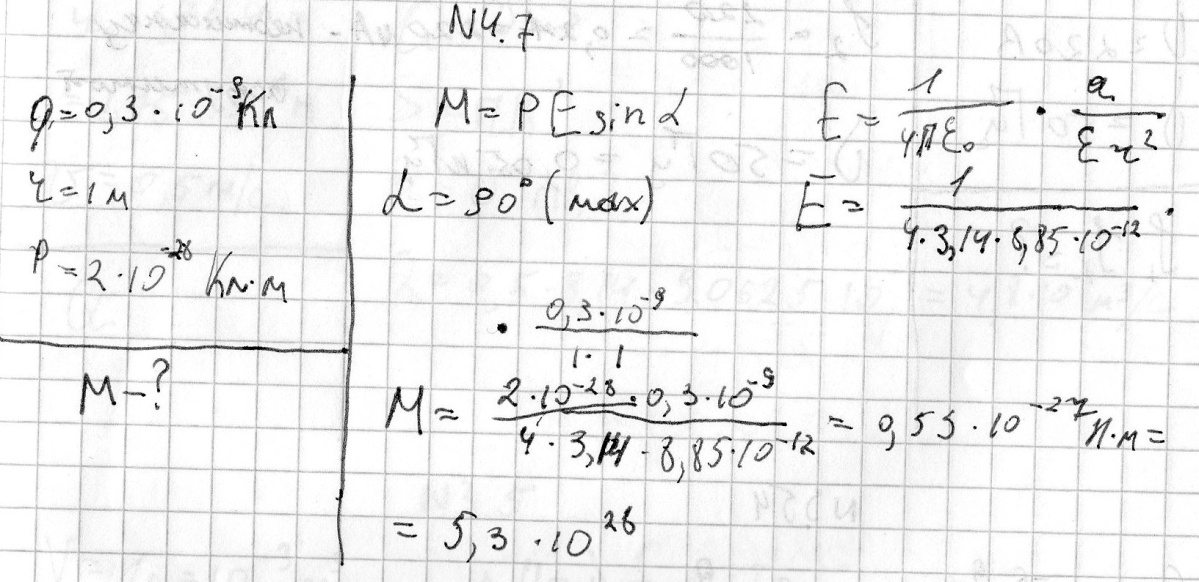 N4.7
q = 0,3 · 10⁻⁹ Кл
r = 1 м
P = 2 · 10⁻²⁸ Кл·м
M – ?
M = PE sin α
α = 90° (max)
E = 1/(4πε₀) · q/(εr²)
E = 1/(4·3,14·8,85·10⁻¹²) ·
· (0,3·10⁻⁹)/(1·1)
M = (2·10⁻²⁸·0,3·10⁻⁹)/(4·3,14·8,85·10⁻¹²) = 0,53·10⁻²⁷ Н·м =
= 5,3 · 10²⁸